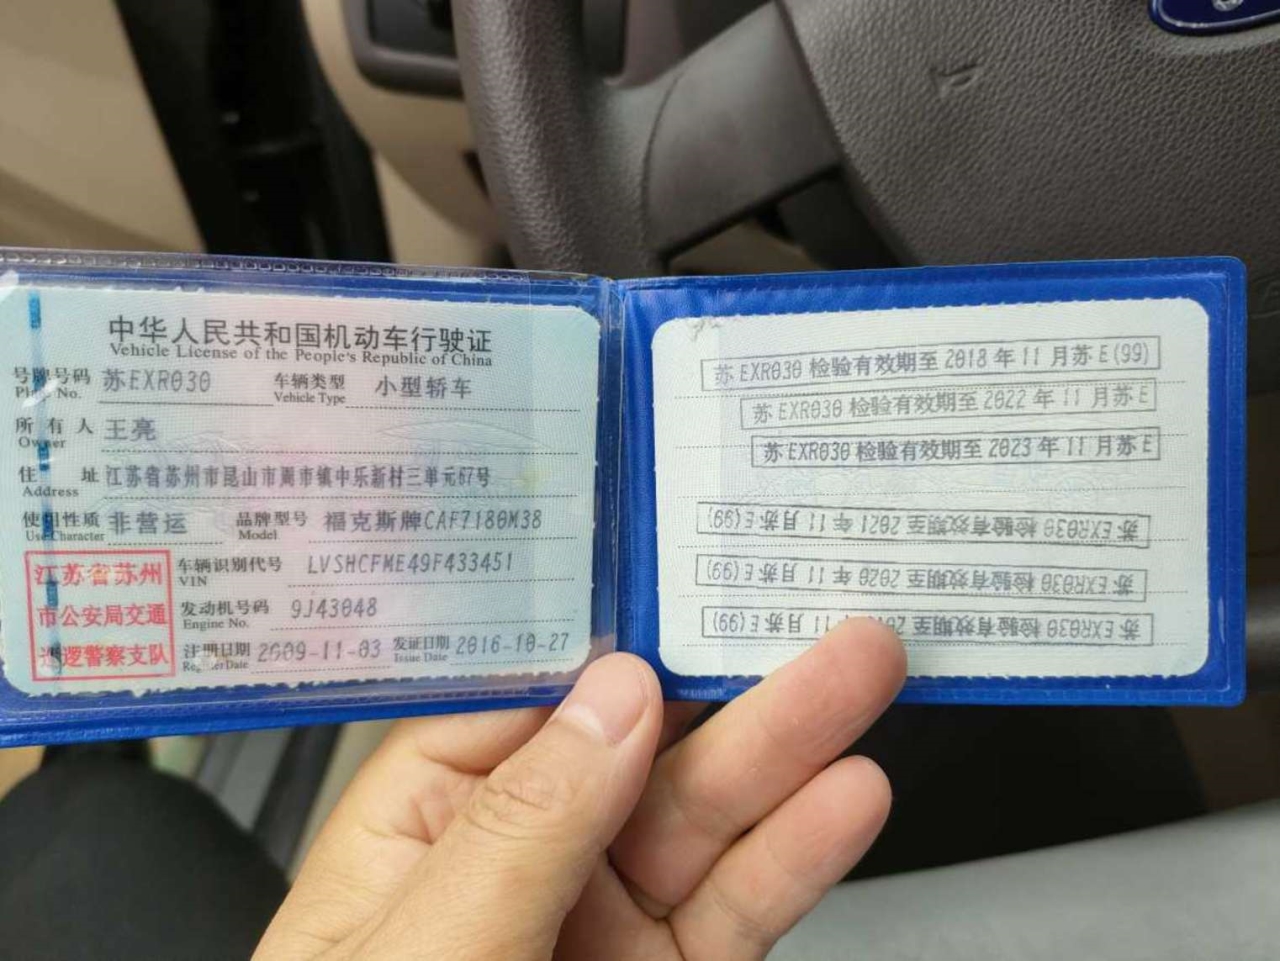 中华人民共和国机动车行驶证
Vehicle License of the People's Republic of China
号牌号码 苏EXR030 车辆类型 小型轿车
No. Vehicle Type
所有人 王亮
Owner
住址 江苏省苏州市昆山市周市镇中乐新村三单元67号
Address
使用性质 非营运 品牌型号 福克斯牌CAF7180M38
Use Character Model
车辆识别代号 LVSHCFME49F433451
VIN
发动机号码 9J43048
Engine No.
注册日期 2009-11-03 发证日期 2016-10-27
Date Issue Date
江苏省苏州
市公安局交通
巡逻警察支队
苏EXR030检验有效期至2018年11月苏E(99)
苏EXR030检验有效期至2022年11月苏E
苏EXR030检验有效期至2023年11月苏E
苏EXR030检验有效期至2021年11月苏E(99)
苏EXR030检验有效期至2020年11月苏E(99)
苏EXR030检验有效期至 年11月苏E(99)